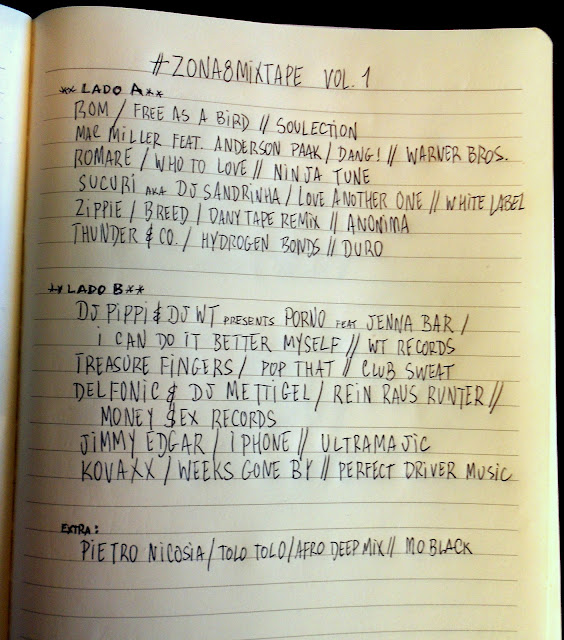 #ZONA8MIXTAPE VOL.1
** LADO A**
BOM / FREE AS A BIRD // SOULECTION
MAC MILLER FEAT. ANDERSON PAAK / DANG! // WARNER BROS.
ROMARE / WHO TO LOVE // NINJA TUNE
SUCURI AKA DJ SANDRINHA / LOVE ANOTHER ONE // WHITE LABEL
ZIPPIE / BREED / DANY TAPE REMIX // ANONIMA
THUNDER & CO. / HYDROGEN BONDS // DURO
** LADO B**
DJ PIPPI & DJ WT PRESENTS PORNO FEAT JENNA BAR /
I CAN DO IT BETTER MYSELF // WT RECORDS
TREASURE FINGERS / POP THAT // CLUB SWEAT
DELFONIC & DJ METTIGEL / REIN RAUS RUNTER //
MONEY $EX RECORDS
JIMMY EDGAR / I PHONE // ULTRAMAJIC
KOVAXX / WEEKS GONE BY // PERFECT DRIVER MUSIC
EXTRA:
PIETRO NICOSIA / TOLO TOLO / AFRO DEEP MIX // MOBLACK